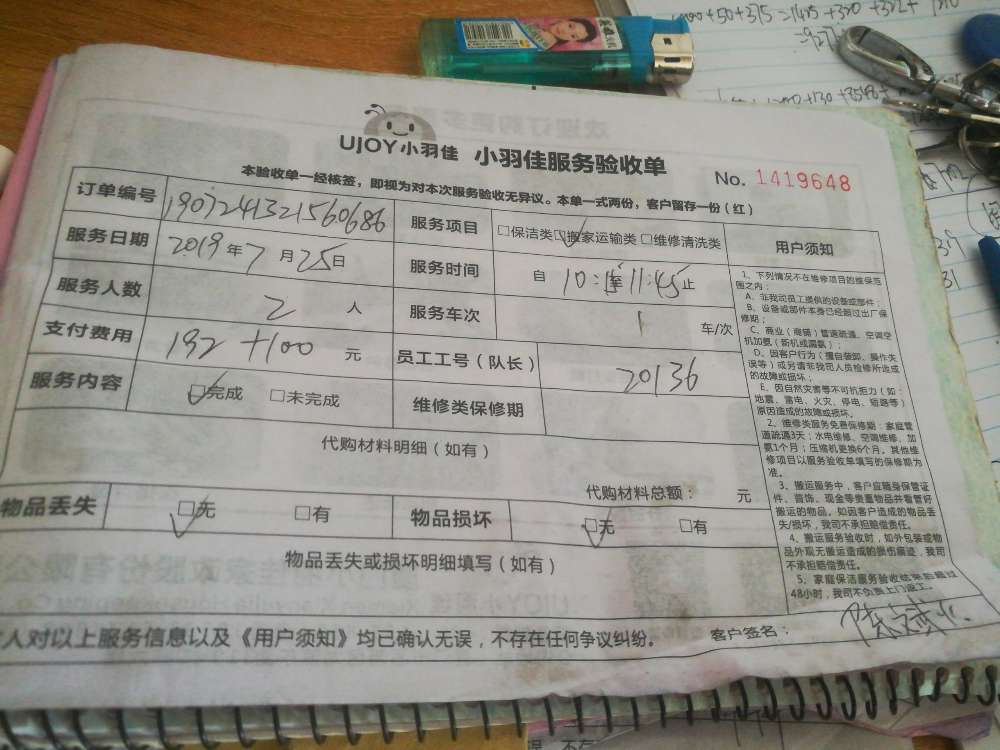 UJOY小羽佳 小羽佳服务验收单
No. 1419648
本验收单一经核签，即视为对本次服务验收无异议。本单一式两份，客户留存一份（红）
订单编号 1907241321560686 服务项目 □保洁类 □搬家运输类 □维修清洗类 用户须知
服务日期 2019年7月25日 服务时间 自 10: 11:45止
服务人数 2 人 服务车次 1 车/次
支付费用 192+100 元 员工工号（队长） 20136
服务内容 □完成 □未完成 维修类保修期
1、下列情况不在维修项目的维保范
围之内：
A、非我司员工提供的设备或部件；
B、设备或部件本身已经超过出厂保
修期；
C、商业（商铺）管道疏通、空调空
机加氨（新机或漏氨）；
D、因客户行为（擅自装卸、操作失
误等）或另请非我司人员检修所造成
的故障或损坏；
E、因自然灾害等不可抗拒力（如：
地震、雷电、火灾、停电、短路等）
原因造成的故障或损坏。
2、维修类服务免费保修期：家庭管
道疏通3天；水电维修、空调维修、加
氨1个月；压缩机更换6个月，其他维
修项目以服务验收单填写的保修期为
准。
3、搬运服务中，客户应随身保管证
件、首饰、现金等贵重物品并看管好
搬运的物品。如因客户造成的物品丢
失/损坏，我司不承担赔偿责任。
4、搬运服务验收时，如外包装或物
品外观无搬运造成的损伤痕迹，我司
不承担赔偿责任。
5、家庭保洁服务验收结束后超过
48小时，我司不负责上门返工。
代购材料明细（如有）
代购材料总额： 元
物品丢失 □无 □有 物品损坏 □无 □有
物品丢失或损坏明细填写（如有）
人对以上服务信息以及《用户须知》均已确认无误，不存在任何争议纠纷。 客户签名：